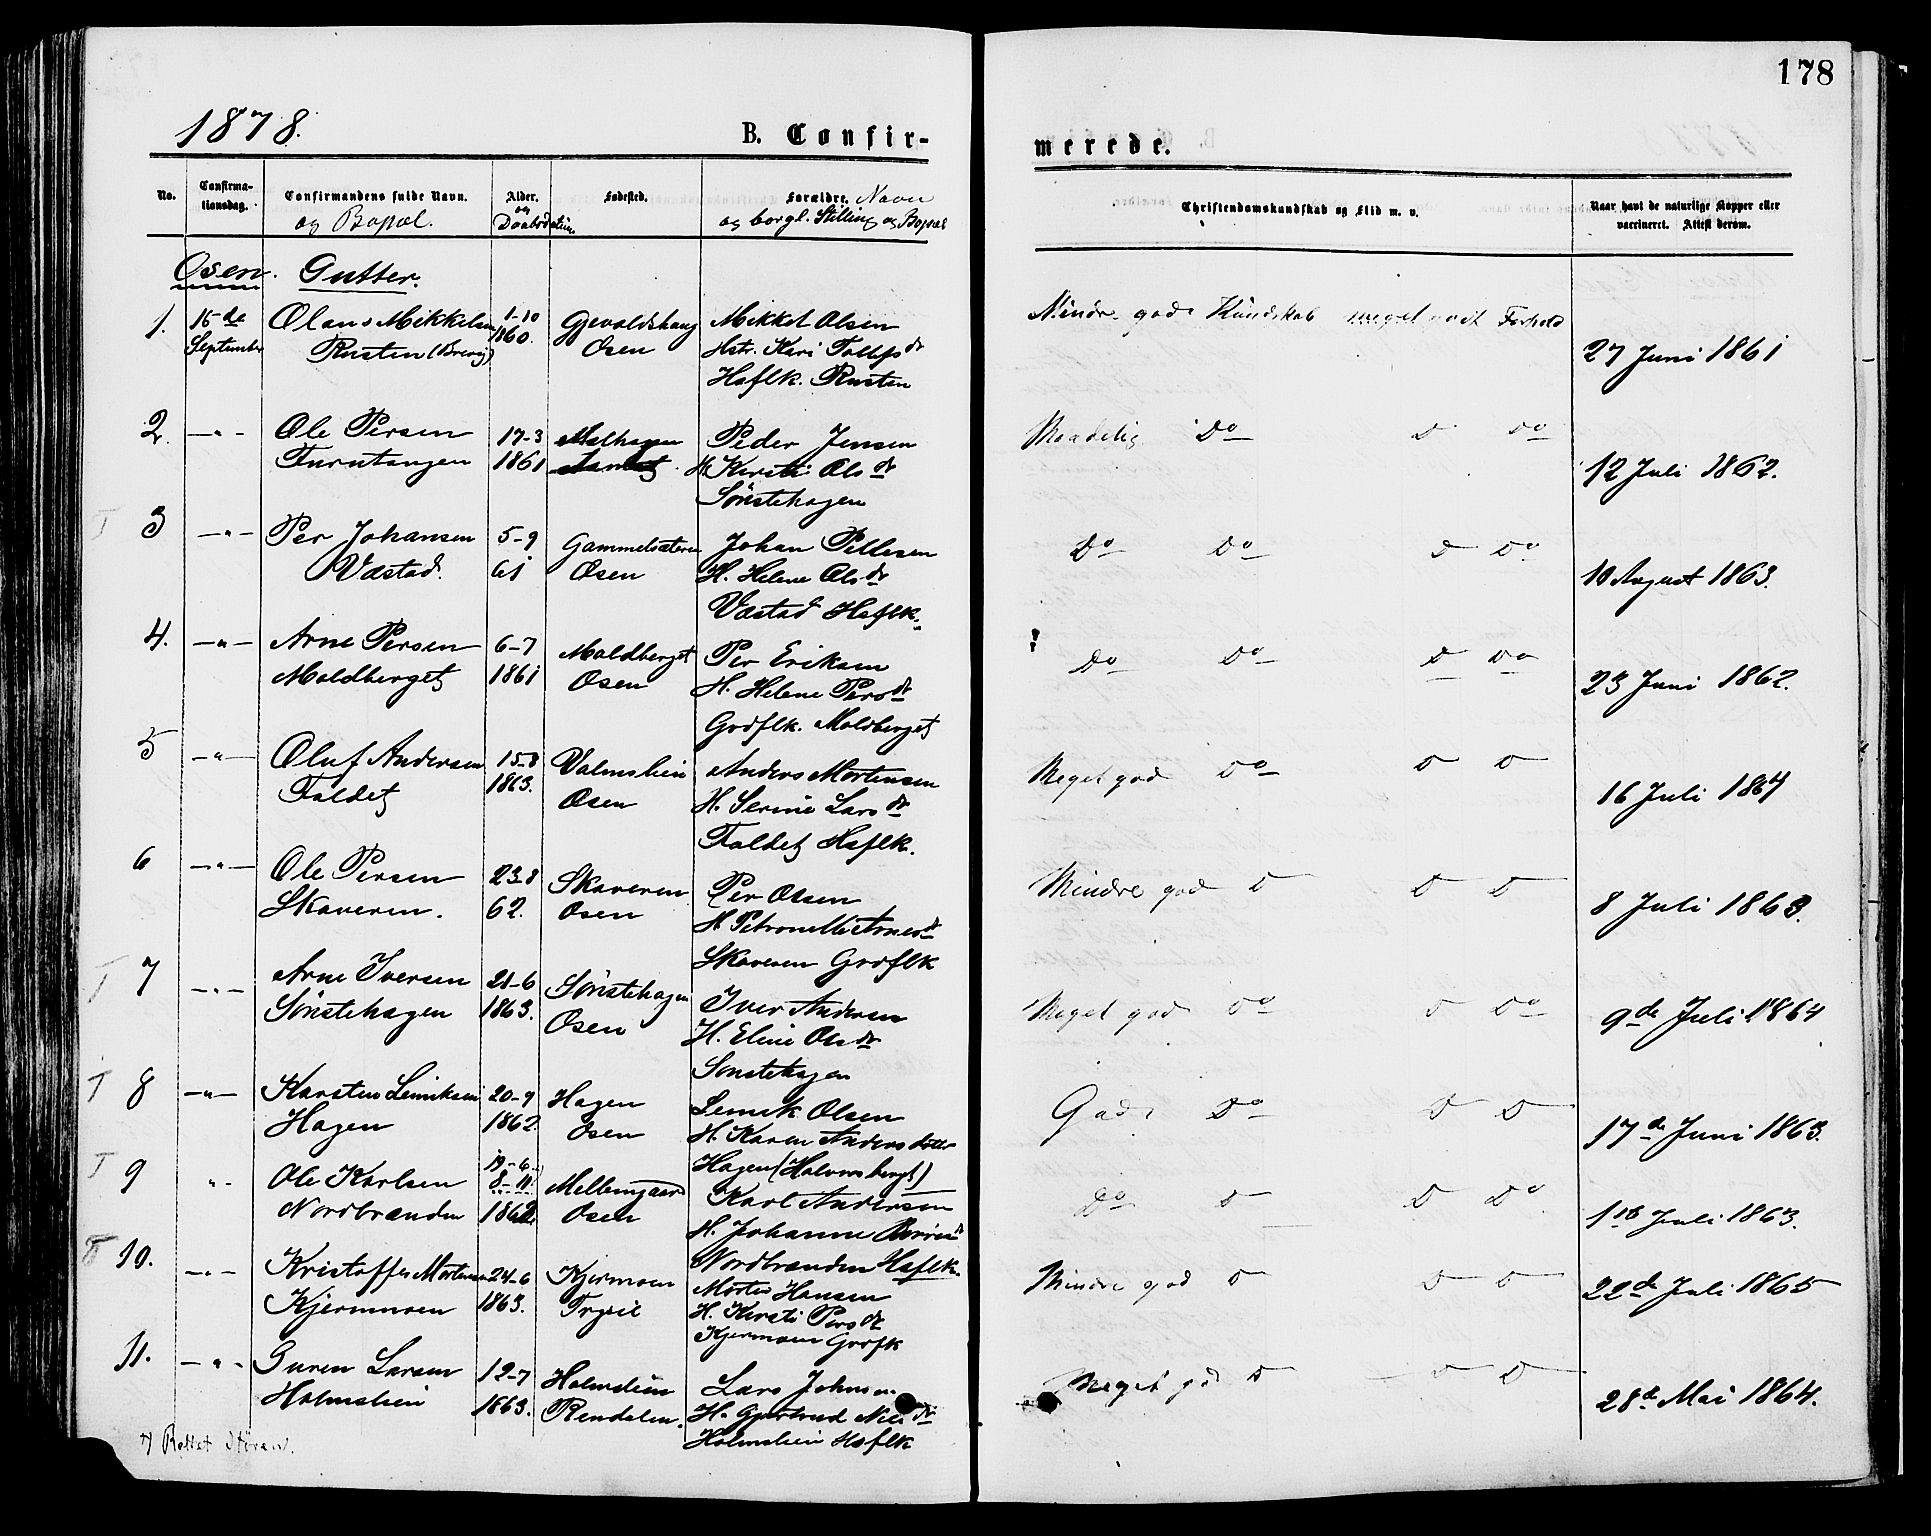 178
1878.
B. Confir-
merede.
No.
Confirma-
tionsdag.
Confirmandens fulde Navn.
og Bopæl.
Alder.
og
Daabsdatum
Fødested.
Forældre. Navn
og borgl. Stilling og Bopæl
Christendomskundskab og Flid m. v.
Naar havt de naturlige Kopper eller
vaccineret. Attest derom.
Osen. Gutter.
1. 15de September
Olaus Mikkelsen
Rusten (Brevig)
1-10
1860.
Gjevoldshaug
Osen
Mikkel Olsen
Hstr. Kari Tollefsdr
Hsflk. Rusten
Mindre gods Kundskab meget godt Forhold
27 Juni 1861
2. —"—
Ole Persen
Furutangen
17-3
1861
Peder Jensen
H. Kirsti Olsdr
Sönstehagen
Maadelig Do D Do
12 Juli 1862.
3 —"—
Per Johansen
Væstad.
5-9
61
Gammelsæteren
Osen
Johan Pettesen
H. Helene Olsdr
Væstad Hsflk.
Do Do D Do
10 August 1863.
4. —"—
Arne Persen
Moldberget
6-7
1861
Moldberget
Osen
Per Eriksen
H. Helene Persdr
Grdflk. Moldberget
Do Do D Do
23 Juni 1862.
5 —"—
Oluf Andersen
Faldet
15-8
1863.
Valmslien
Osen
Anders Mortensen
H. Serine Larsdr
Faldet Hsflk.
Meget god Do D D
16 Juli 1864
6 —"—
Ole Persen
Skaveren.
23-8
62.
Skaveren
Osen
Per Olsen
H. Petronelle Arnesdr
Skaveren Grdflk
Mindre god D D D
8 Juli 1863.
T 7 —"—
Arne Iversen
Sönstehagen
21-6
1863.
Sönstehagen
Osen
Iver Andersen
H. Eline Olsdr
Sönstehagen
Meget god Do D Do
9de Juli 1864
T 8 —"—
Karsten Lemiksen
Hagen
20-9
1862.
Hagen
Osen
Lemik Olsen
H. Karen Andersdatter
Hagen (Halvorsberget)
Gods Do D D
17de Juni 1863.
T 9 "
Ole Karlsen
Nordbrænden
19-6
8-11
1862.
Mellemgaard
Osen
Karl Andersen
H. Johanne
Nordbrænden Hsflk.
Do D D Do
1ste Juli 1863.
T 10. —"—
Kristoffer Mortensen
Kjernmoen
24-6
1863.
Kjernmoen
Trysil
Morten Hansen
H. Kirsti Persdr
Kjernmoen Grdflk
Mindre god D D D
22de Juli 1865
11. —"—
Suren Larsen
Holmslien
12-7
1863.
Holmslien
Rendalen.
Lars Johnsen
H. Gjertrud Nilsdr
Holmslien Hsflk
Meget god D D D
28de Mai 1864.